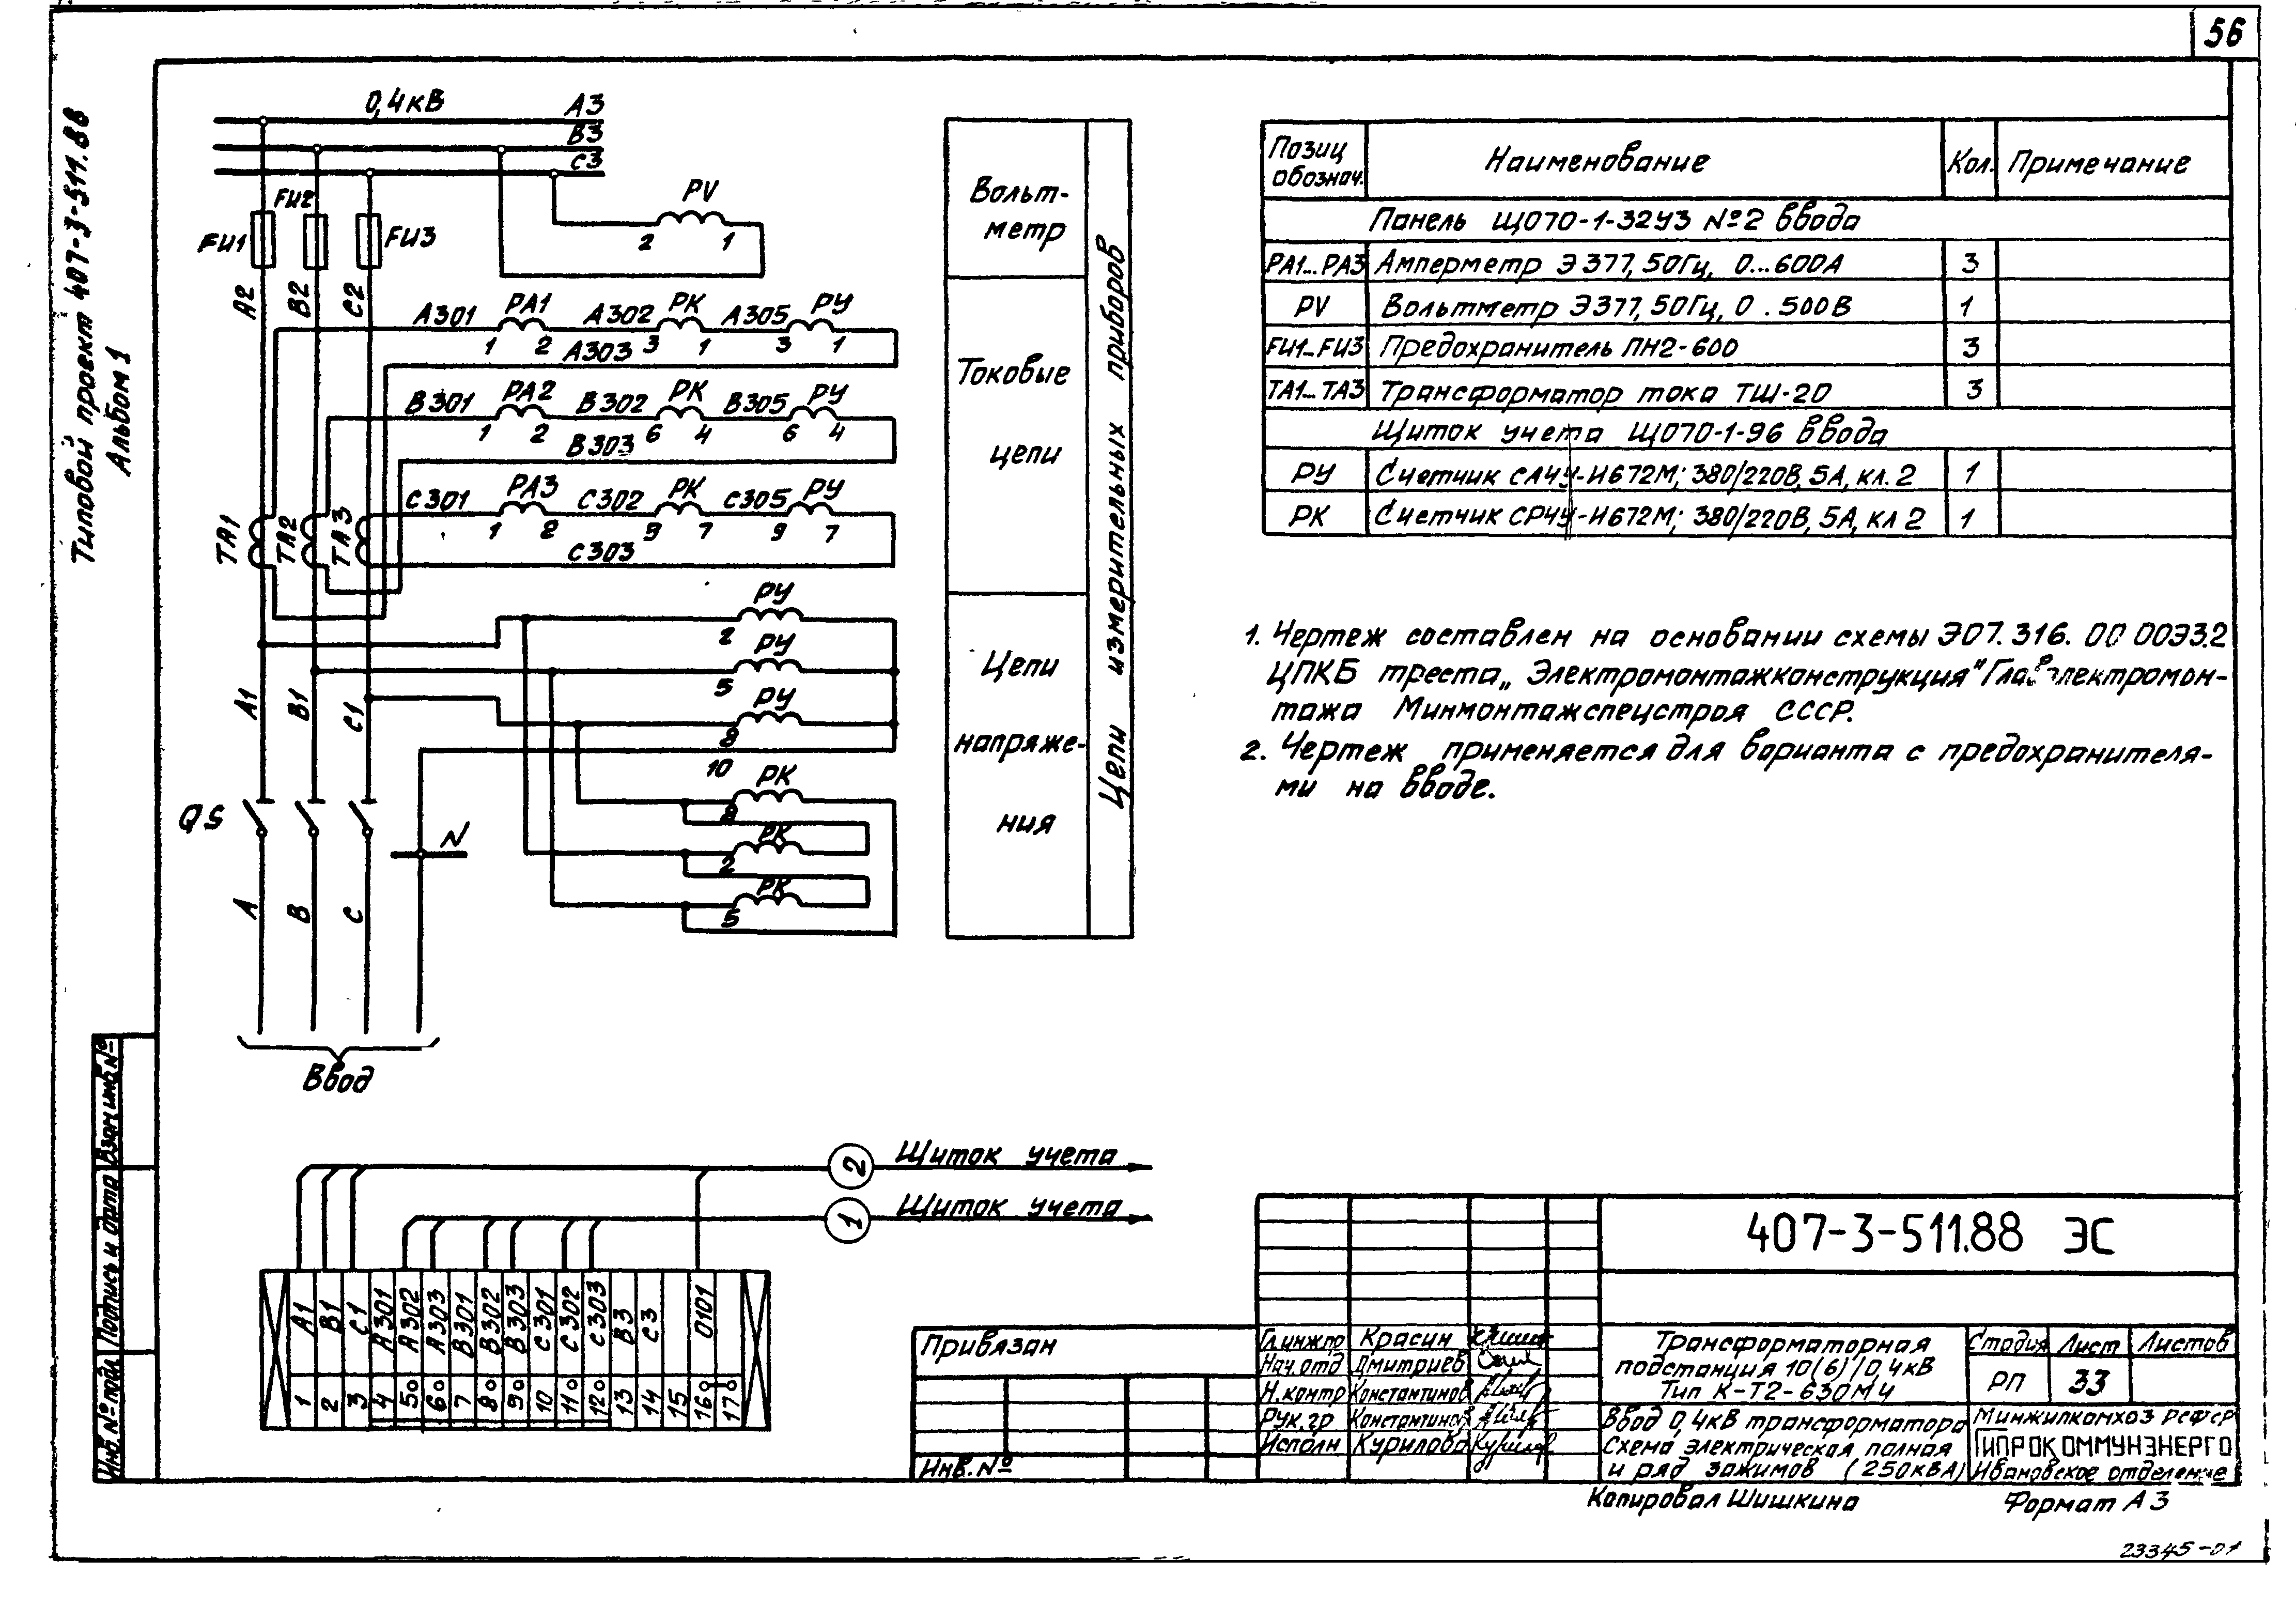 56
Типовой проект 407-3-511.88
Альбом 1
0,4кВ
А3
В3
С3
FU1
FU2
FU3
PV
2 1
А2
В2
С2
А301 РА1 А302 РК А305 РУ
1 2 3 1 3 1
А303
В301 РА2 В302 РК В305 РУ
1 2 6 4 6 4
В303
С301 РА3 С302 РК С305 РУ
1 2 9 7 9 7
С303
ТА1
ТА2
ТА3
РУ
2
РУ
5
РУ
8
10
РК
8
РК
2
РК
5
А1
В1
С1
QS
N
А
В
С
Ввод
Вольт-
метр
Токовые
цепи
Цепи
напряже-
ния
Цепи измерительных приборов
Позиц обознач. Наименование Кол. Примечание
Панель ЩО70-1-32У3 №2 ввода
РА1...РА3 Амперметр Э377, 50Гц, 0...600А 3
PV Вольтметр Э377, 50Гц, 0 . 500В 1
FU1...FU3 Предохранитель ПН2-600 3
ТА1...ТА3 Трансформатор тока ТШ-20 3
Щиток учета ЩО70-1-96 ввода
РУ Счетчик СА4У-И672М; 380/220В, 5А, кл. 2 1
РК Счетчик СР4У-И672М; 380/220В, 5А, кл 2 1
1. Чертеж составлен на основании схемы Э07.316.00 00Э3.2
ЦПКБ треста „Электромонтажконструкция" Главэлектромон-
тажа Минмонтажспецстроя СССР.
2. Чертеж применяется для варианта с предохранителя-
ми на вводе.
2 Щиток учета
1 Щиток учета
А1 В1 С1 А301 А302 А303 В301 В302 В303 С301 С302 С303 В3 С3 0101
1 2 3 4 5 6 7 8 9 10 11 12 13 14 15 16 17
Взам. инв. №
Подпись и дата
Инв. № подл.
Привязан
Инв. №
407-3-511.88 ЭС
Гл.инж.пр Красин
Нач.отд Дмитриев
Н.контр Константинов
Рук.гр Константинов
Исполн Курилова
Трансформаторная
подстанция 10(6)/0,4кВ
Тип К-Т2-630М4
Стадия Лист Листов
РП 33
Ввод 0,4кВ трансформатора
Схема электрическая полная
и ряд зажимов (250кВА)
Минжилкомхоз РСФСР
ГИПРОКОММУНЭНЕРГО
Ивановское отделение
Копировал Шишкина
Формат А3
23345-01